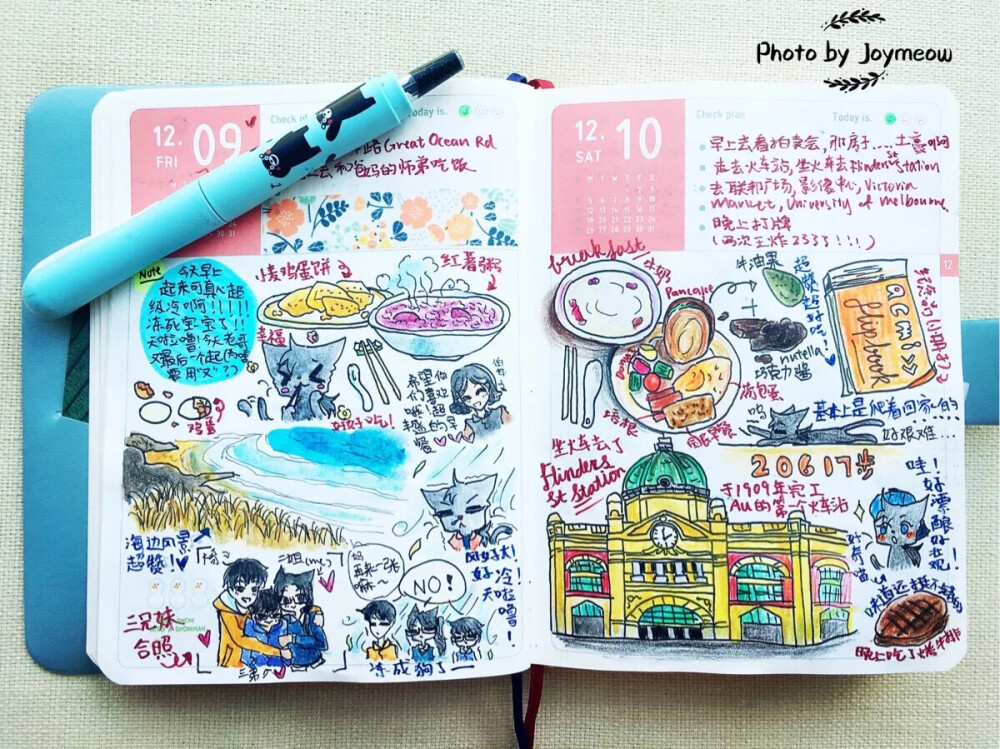 Photo by Joymeow
12.
FRI
09
Check pl
Today is.
路Great Ocean Rd
去和爸妈的师弟吃饭
Note
今天早上
起来可真心超
级冷啊!!!!!
冻死宝宝了!!
天啦噜!今天老哥
又最后一个起(为啥
要用“又”?)
烤鸡蛋饼
红薯粥
幸福
鸡蛋
好好吃!
希望你
们喜欢
哦!超
丰盛的早
餐
海边风景
超赞!
风好大!
好冷!
天啦噜!
三兄妹
合照
二姐(me)
三弟
再来一张
嘛~
NO!
冻成狗了
12.
SAT
10
S M T W T F S
Check plan
Today is.
早上去看拍卖会,那房子....土豪啊
走去火车站,坐火车去Flinders St Station
去联邦广场,影像中心,Victoria
Market, University of Melbourne
晚上打牌
(两次王炸2333!!!)
12
breakfast
牛奶
Pancake
牛油果
超赞超好吃!
nutella
巧克力酱
荷包蛋
培根
acmi
flip book
基本上是爬着回家的
好艰难...
坐火车去了
Flinders
St Station
20617步
于1909年完工
Au的第一个火车站
哇!
好漂酿好壮观!
味道还挺不错的
晚上吃了烤牛排